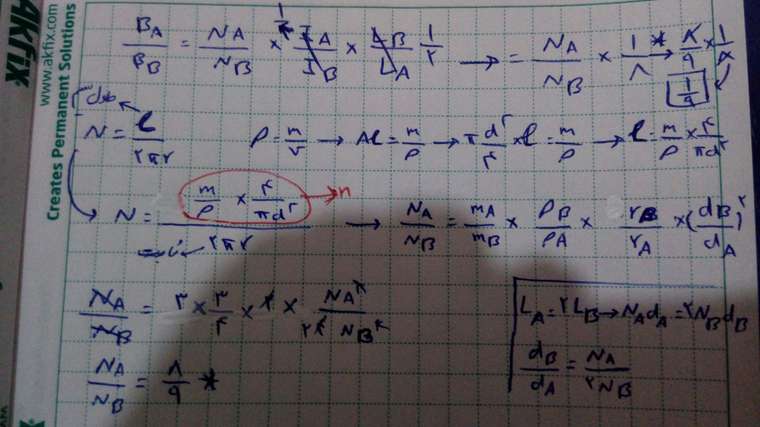 Akfix
www.akfix.com
Creates Permanent Solutions
B_A/B_B = N_A/N_B × 1/۴ I_A/I_B × L_B/L_A 1/۲ → = N_A/N_B × 1/۸ * → ۸/۹ × 1/۸
1/۹
طول
N = l/۲πr   ρ = m/v → Al = m/ρ → π d^۲/۴ × l = m/ρ → l = m/ρ × ۴/πd^۲
N = (m/ρ × ۴/πd^۲)/۲πr → n → N_A/N_B = m_A/m_B × ρ_B/ρ_A × r_B/r_A × (d_B/d_A)^۲
N_A/N_B = ۳ × ۳/۴ × ۲ × N_A^۲/۲^۲ N_B^۲
N_A/N_B = ۸/۹ *
L_A = ۲L_B → N_A d_A = ۲N_B d_B
d_B/d_A = N_A/۲N_B